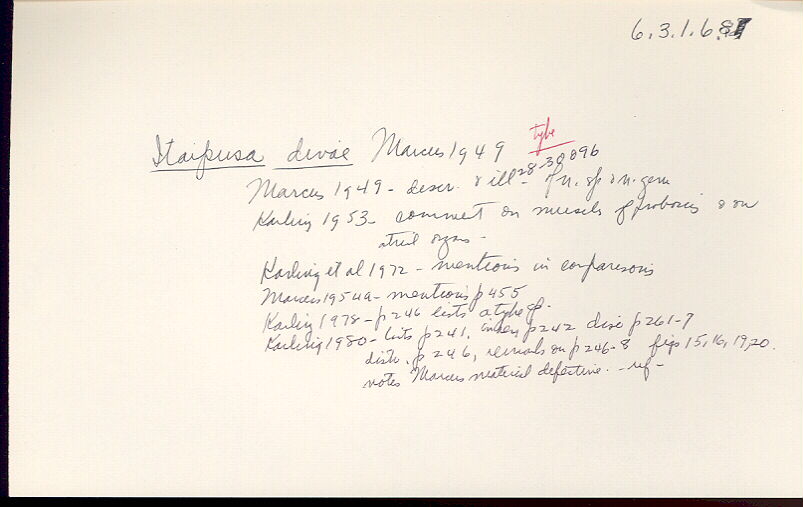 6.3.1.6.8
type
Itaipusa divae Marcus 1949
Marcus 1949 - descr. & ill - 28-30 & 96 of n. sp & n. gen
Karling 1953 - comment on muscls of proboscis & on
atrial organs -
Karling et al 1972 - mentions in comparisons
Marcus 1954a - mentions p 455
Karling 1978 - p 246 lists a type sp.
Karling 1980 - lists p 241, in key p 242 disc p 261-7
distr. p 246, remarks on p 246-8 figs 15, 16, 19, 20.
notes Marcus material defective. - ref -